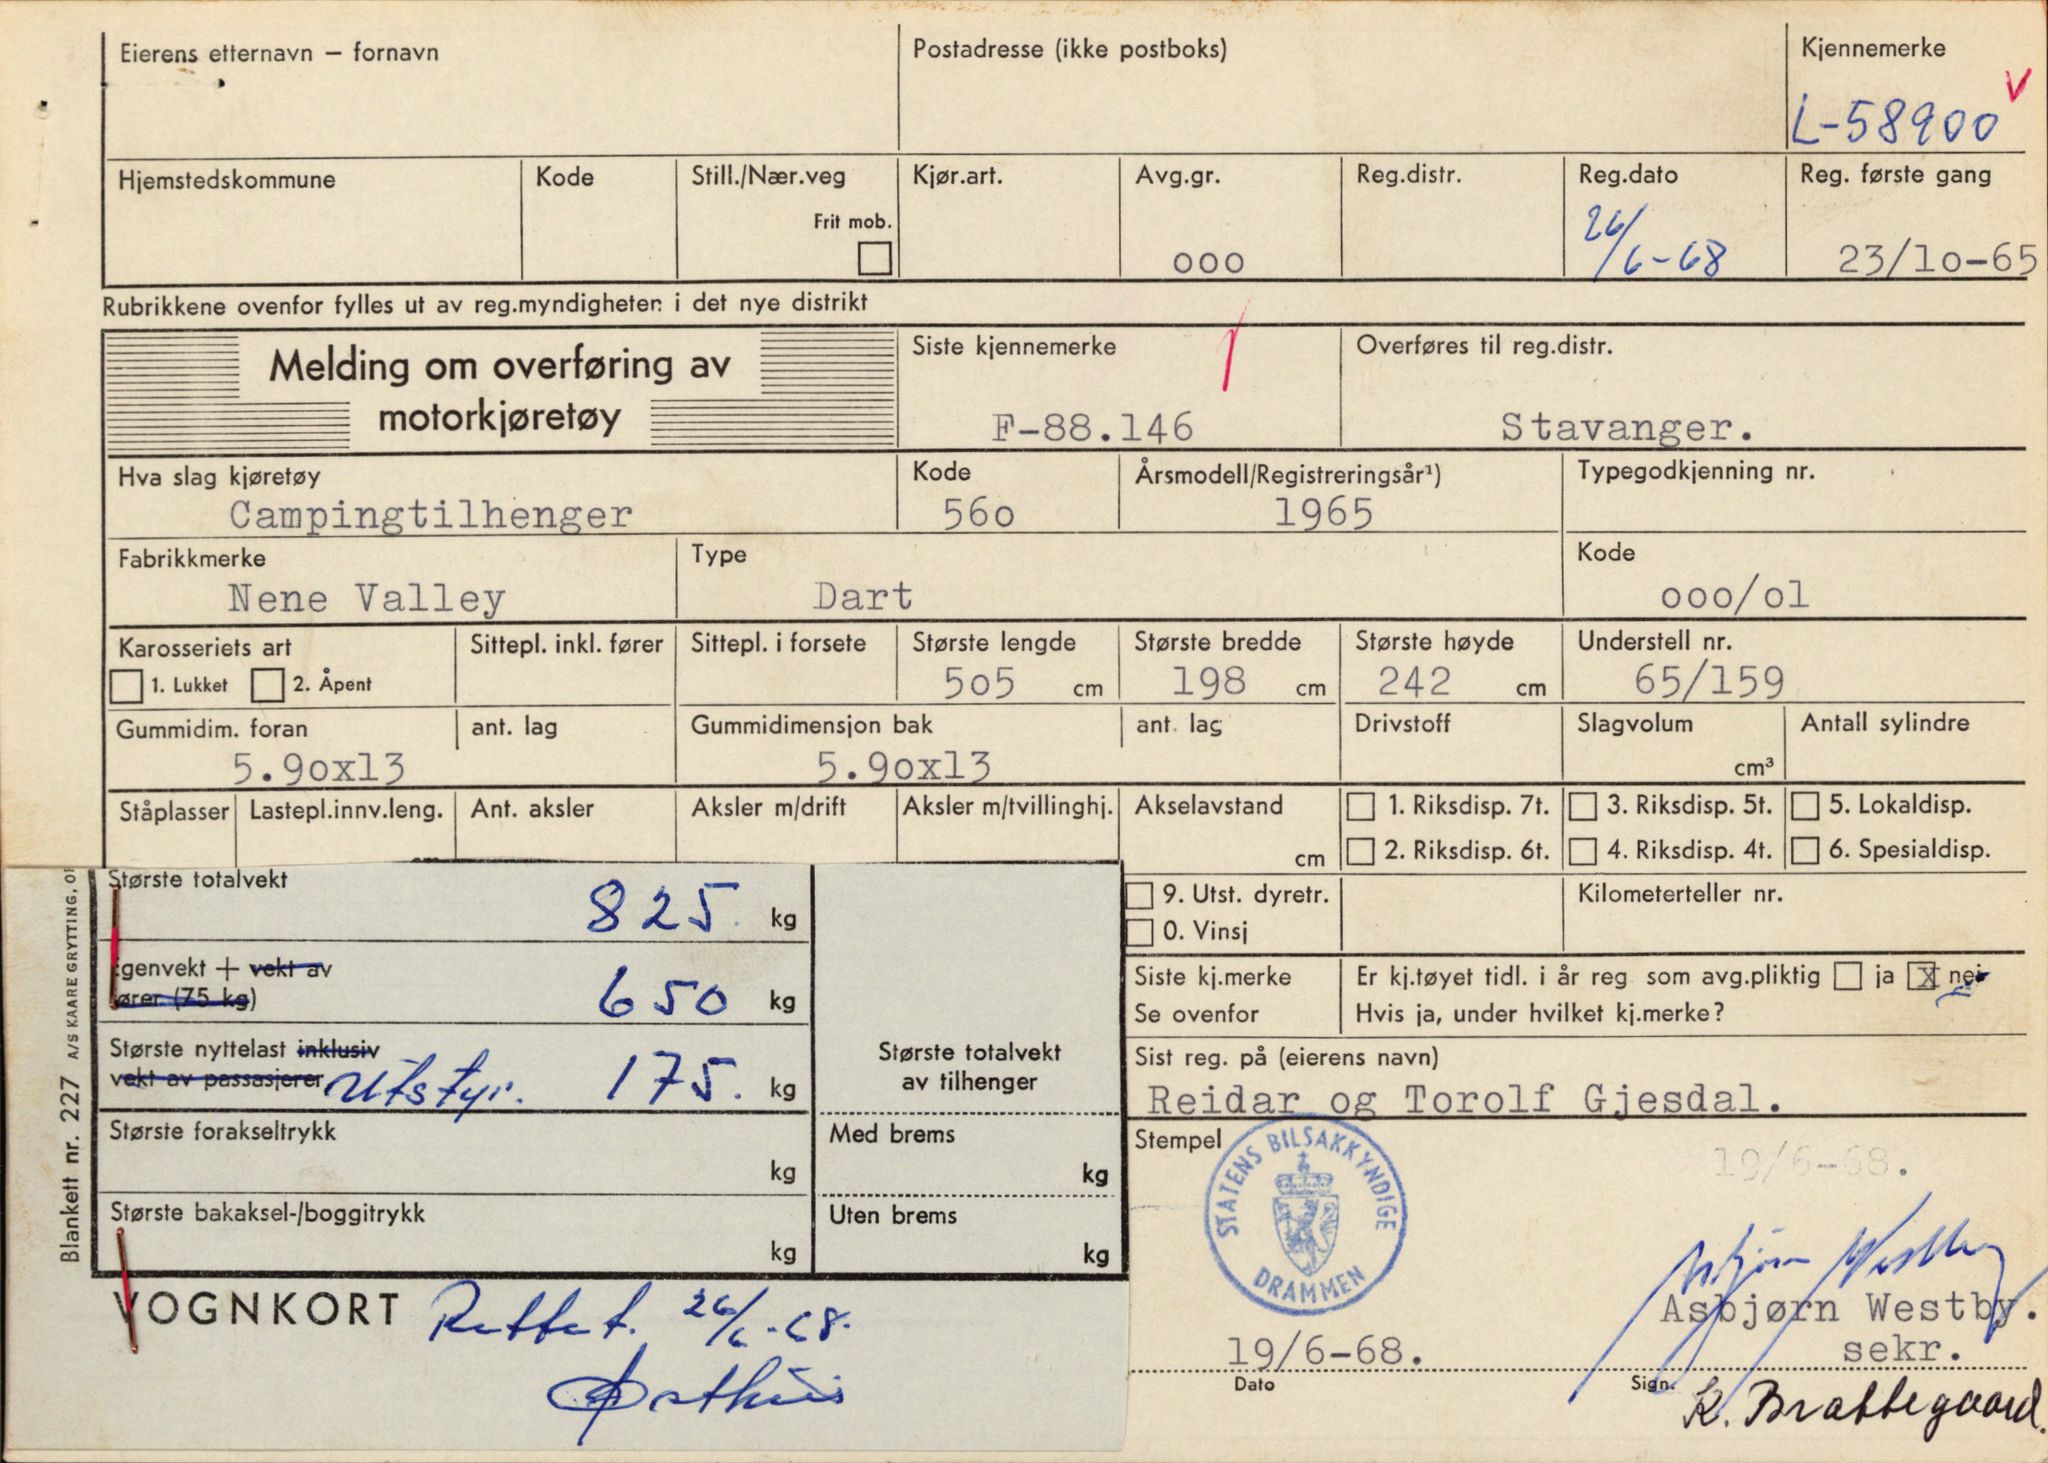 Eierens etternavn – fornavn
Postadresse (ikke postboks)
Kjennemerke
V
L-58900
Hjemstedskommune
Kode
Still./Nær.veg
Frit mob.
Kjør.art.
Avg.gr.
ooo
Reg.distr.
Reg.dato
26/6-68
Reg. første gang
23/lo-65
Rubrikkene ovenfor fylles ut av reg.myndigheten i det nye distrikt
Melding om overføring av
motorkjøretøy
Siste kjennemerke
F-88.146
Overføres til reg.distr.
Stavanger.
Hva slag kjøretøy
Campingtilhenger
Kode
56o
Årsmodell/Registreringsår¹)
1965
Typegodkjenning nr.
Fabrikkmerke
Nene Valley
Type
Dart
Kode
ooo/ol
Karosseriets art
1. Lukket 2. Åpent
Sittepl. inkl. fører
Sittepl. i forsete
Største lengde
5o5 cm
Største bredde
198 cm
Største høyde
242 cm
Understell nr.
65/159
Gummidim. foran
5.9oxl3
ant. lag
Gummidimensjon bak
5.9oxl3
ant. lag
Drivstoff
Slagvolum
cm³
Antall sylindre
Ståplasser
Lastepl.innv.leng.
Ant. aksler
Aksler m/drift
Aksler m/tvillinghj.
Akselavstand
cm
1. Riksdisp. 7t. 3. Riksdisp. 5t. 5. Lokaldisp.
2. Riksdisp. 6t. 4. Riksdisp. 4t. 6. Spesialdisp.
Største totalvekt
825. kg
genvekt + vekt av
ører (75 kg)
650 kg
Største nyttelast inklusiv
vekt av passasjerer Utstyr. 175. kg
Største forakseltrykk
kg
Største bakaksel-/boggitrykk
kg
Største totalvekt
av tilhenger
Med brems
kg
Uten brems
kg
Blankett nr. 227 A/S KAARE GRYTTING, OR
VOGNKORT
Rettet. 26/6-68.
9. Utst. dyretr.
0. Vinsj
Kilometerteller nr.
Siste kj.merke
Se ovenfor
Er kj.tøyet tidl. i år reg som avg.pliktig ja X nei
Hvis ja, under hvilket kj.merke?
Sist reg. på (eierens navn)
Reidar og Torolf Gjesdal.
Stempel
STATENS BILSAKKYNDIGE
DRAMMEN
19/6-68.
Asbjørn Westby
Asbjørn Westby.
sekr.
19/6-68.
Dato
Sign.
K. Brattegaard.